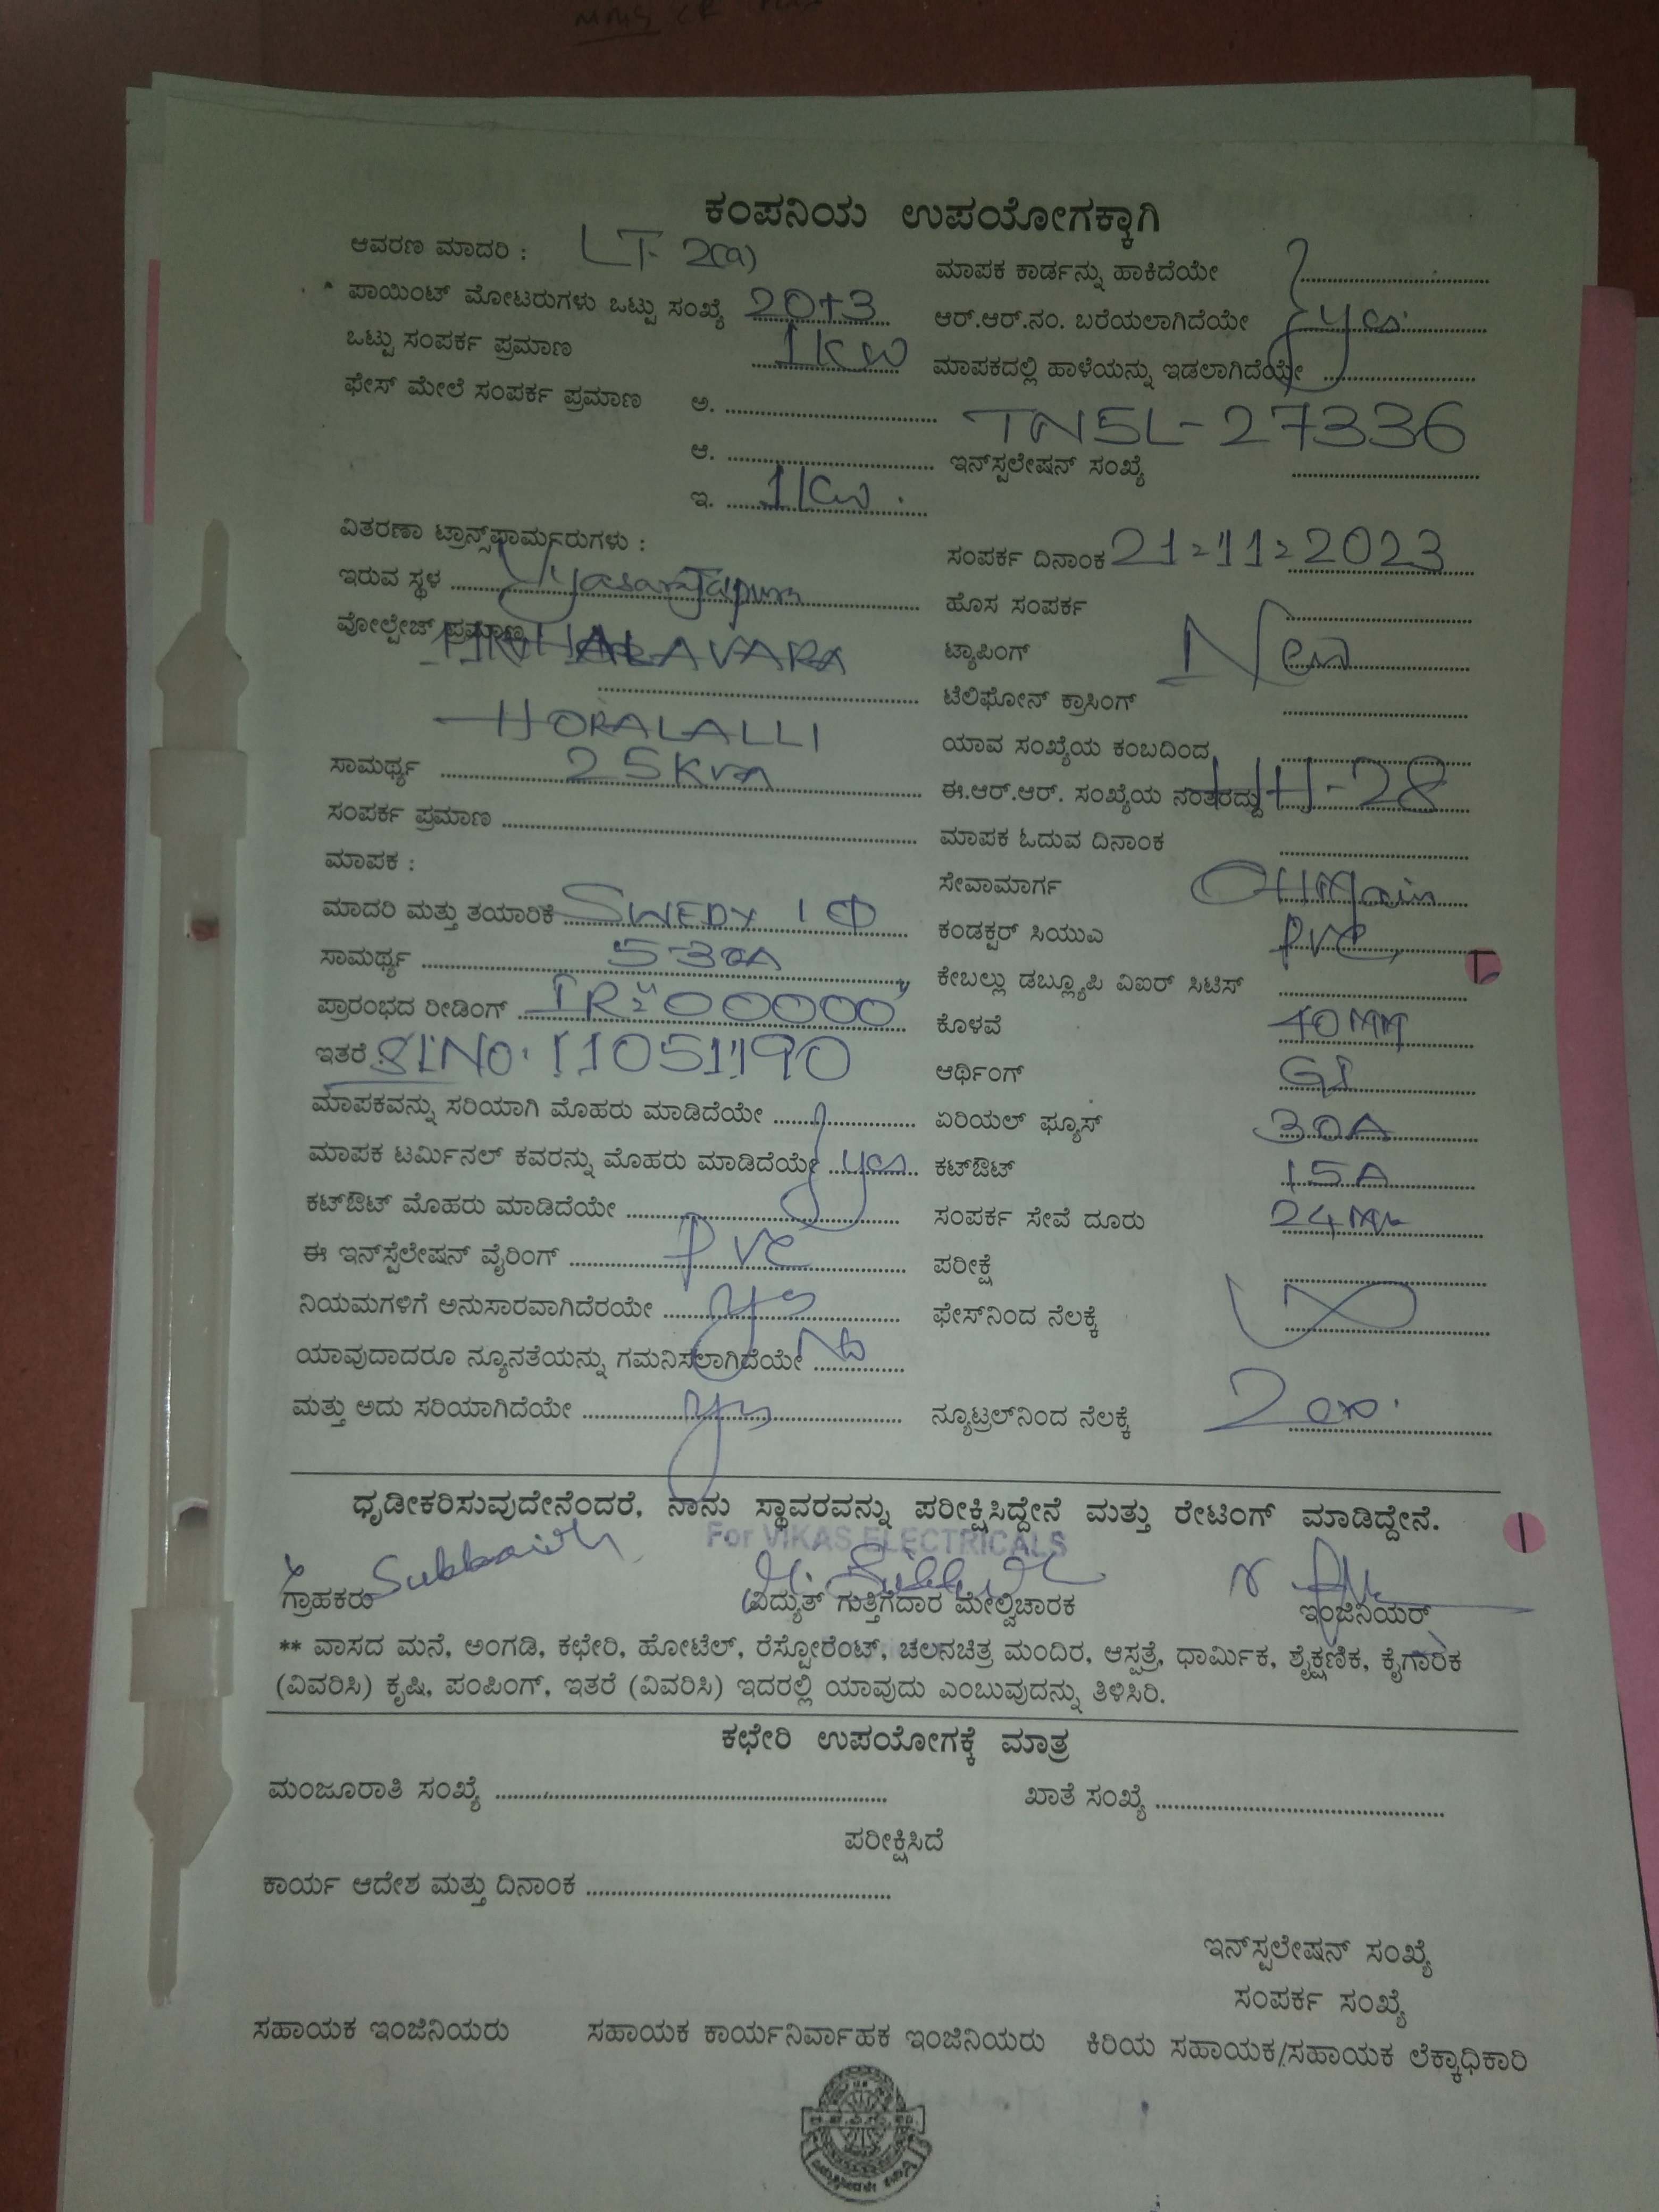 ಕಂಪನಿಯ ಉಪಯೋಗಕ್ಕಾಗಿ
ಆವರಣ ಮಾದರಿ : LT- 2(a)
ಪಾಯಿಂಟ್ ಮೋಟರುಗಳು ಒಟ್ಟು ಸಂಖ್ಯೆ 20+3
ಒಟ್ಟು ಸಂಪರ್ಕ ಪ್ರಮಾಣ 1KW
ಫೇಸ್ ಮೇಲೆ ಸಂಪರ್ಕ ಪ್ರಮಾಣ ಅ. ....................
ಆ. ....................
ಇ. 1KW.
ವಿತರಣಾ ಟ್ರಾನ್ಸ್‌ಫಾರ್ಮರುಗಳು :
ಇರುವ ಸ್ಥಳ
ವೋಲ್ಟೇಜ್ ಪ್ರಮಾಣ
HORALALLI
ಸಾಮರ್ಥ್ಯ 25KVA
ಸಂಪರ್ಕ ಪ್ರಮಾಣ ....................
ಮಾಪಕ :
ಮಾದರಿ ಮತ್ತು ತಯಾರಿಕೆ 1 Φ
ಸಾಮರ್ಥ್ಯ 5-30A
ಪ್ರಾರಂಭದ ರೀಡಿಂಗ್ IR= 00000
ಇತರೆ : SLNO: 11051190
ಮಾಪಕವನ್ನು ಸರಿಯಾಗಿ ಮೊಹರು ಮಾಡಿದೆಯೇ
ಮಾಪಕ ಟರ್ಮಿನಲ್ ಕವರನ್ನು ಮೊಹರು ಮಾಡಿದೆಯೇ yes
ಕಟ್‌ಔಟ್ ಮೊಹರು ಮಾಡಿದೆಯೇ
ಈ ಇನ್‌ಸ್ಟೆಲೇಷನ್ ವೈರಿಂಗ್ PVC
ನಿಯಮಗಳಿಗೆ ಅನುಸಾರವಾಗಿದೆರಯೇ yes
ಯಾವುದಾದರೂ ನ್ಯೂನತೆಯನ್ನು ಗಮನಿಸಲಾಗಿದೆಯೇ No
ಮತ್ತು ಅದು ಸರಿಯಾಗಿದೆಯೇ yes
ಮಾಪಕ ಕಾರ್ಡನ್ನು ಹಾಕಿದೆಯೇ
ಆರ್.ಆರ್.ನಂ. ಬರೆಯಲಾಗಿದೆಯೇ yes
ಮಾಪಕದಲ್ಲಿ ಹಾಳೆಯನ್ನು ಇಡಲಾಗಿದೆಯೇ
TN5L-27336
ಇನ್‌ಸ್ಪಲೇಷನ್ ಸಂಖ್ಯೆ
ಸಂಪರ್ಕ ದಿನಾಂಕ 21-11-2023
ಹೊಸ ಸಂಪರ್ಕ
ಟ್ಯಾಪಿಂಗ್ New
ಟೆಲಿಫೋನ್ ಕ್ರಾಸಿಂಗ್
ಯಾವ ಸಂಖ್ಯೆಯ ಕಂಬದಿಂದ
ಈ.ಆರ್.ಆರ್. ಸಂಖ್ಯೆಯ ನಂತರದ್ದು HH-28
ಮಾಪಕ ಓದುವ ದಿನಾಂಕ
ಸೇವಾಮಾರ್ಗ OHMain
ಕಂಡಕ್ಟರ್ ಸಿಯುಎ PVC
ಕೇಬಲ್ಲು ಡಬ್ಲ್ಯೂಪಿ ವಿಐರ್ ಸಿಟಿಸ್
ಕೊಳವೆ 40MM
ಆರ್ಥಿಂಗ್ GI
ಏರಿಯಲ್ ಫ್ಯೂಸ್ 30A
ಕಟ್‌ಔಟ್ 15A
ಸಂಪರ್ಕ ಸೇವೆ ದೂರು
ಪರೀಕ್ಷೆ
ಫೇಸ್‌ನಿಂದ ನೆಲಕ್ಕೆ
ನ್ಯೂಟ್ರಲ್‌ನಿಂದ ನೆಲಕ್ಕೆ
ಧೃಡೀಕರಿಸುವುದೇನೆಂದರೆ, ನಾನು ಸ್ಥಾವರವನ್ನು ಪರೀಕ್ಷಿಸಿದ್ದೇನೆ ಮತ್ತು ರೇಟಿಂಗ್ ಮಾಡಿದ್ದೇನೆ.
For VIKAS ELECTRICALS
ಗ್ರಾಹಕರು ವಿದ್ಯುತ್ ಗುತ್ತಿಗೆದಾರ ಮೇಲ್ವಿಚಾರಕ ಇಂಜಿನಿಯರ್
** ವಾಸದ ಮನೆ, ಅಂಗಡಿ, ಕಛೇರಿ, ಹೋಟೆಲ್, ರೆಸ್ಟೋರೆಂಟ್, ಚಲನಚಿತ್ರ ಮಂದಿರ, ಆಸ್ಪತ್ರೆ, ಧಾರ್ಮಿಕ, ಶೈಕ್ಷಣಿಕ, ಕೈಗಾರಿಕ
(ವಿವರಿಸಿ) ಕೃಷಿ, ಪಂಪಿಂಗ್, ಇತರೆ (ವಿವರಿಸಿ) ಇದರಲ್ಲಿ ಯಾವುದು ಎಂಬುವುದನ್ನು ತಿಳಿಸಿರಿ.
ಕಛೇರಿ ಉಪಯೋಗಕ್ಕೆ ಮಾತ್ರ
ಮಂಜೂರಾತಿ ಸಂಖ್ಯೆ .................... ಖಾತೆ ಸಂಖ್ಯೆ ....................
ಪರೀಕ್ಷಿಸಿದೆ
ಕಾರ್ಯ ಆದೇಶ ಮತ್ತು ದಿನಾಂಕ ....................
ಇನ್‌ಸ್ಪಲೇಷನ್ ಸಂಖ್ಯೆ
ಸಂಪರ್ಕ ಸಂಖ್ಯೆ
ಸಹಾಯಕ ಇಂಜಿನಿಯರು ಸಹಾಯಕ ಕಾರ್ಯನಿರ್ವಾಹಕ ಇಂಜಿನಿಯರು ಕಿರಿಯ ಸಹಾಯಕ/ಸಹಾಯಕ ಲೆಕ್ಕಾಧಿಕಾರಿ